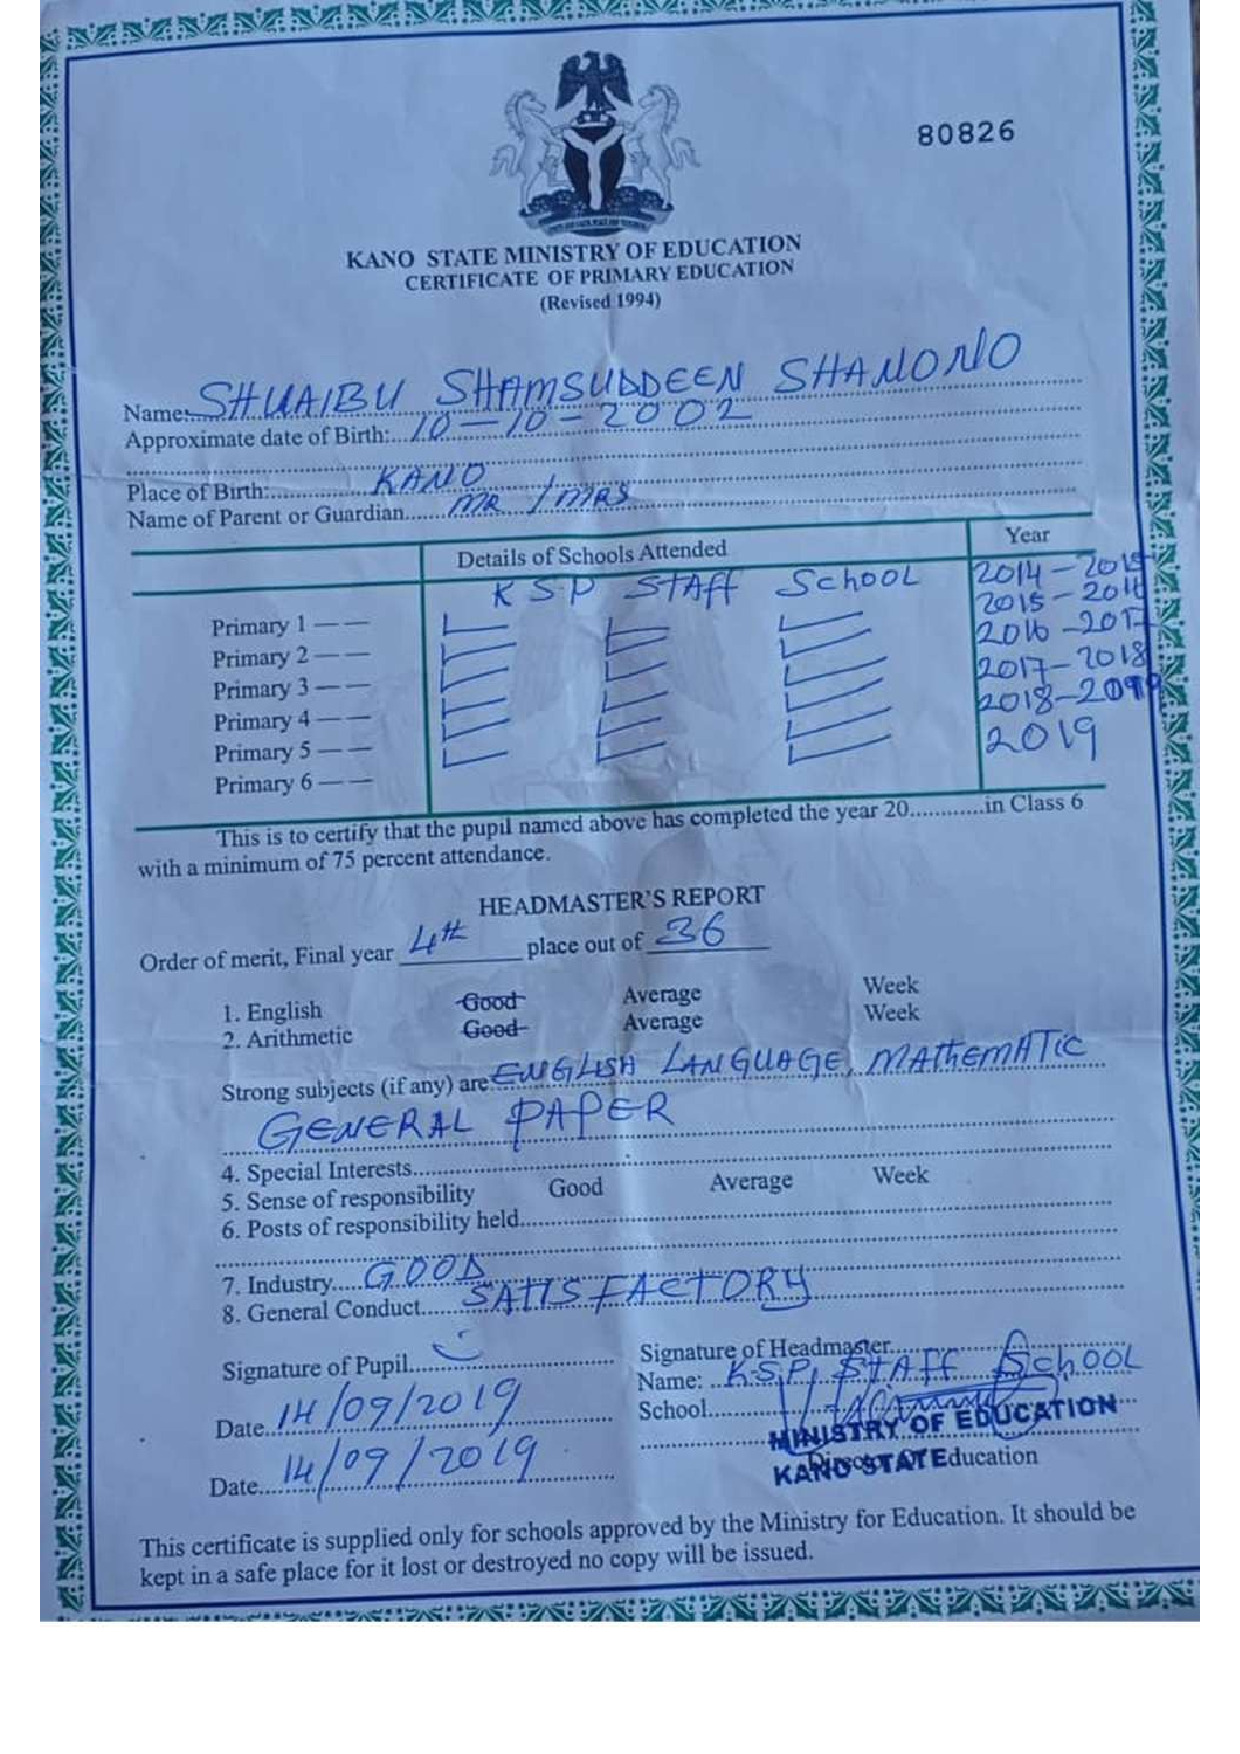 80826
KANO STATE MINISTRY OF EDUCATION
CERTIFICATE OF PRIMARY EDUCATION
(Revised 1994)
Name: SHUAIBU SHAMSUDDEEN SHANONO
Approximate date of Birth: 10-10-2002
Place of Birth: KANO
Name of Parent or Guardian MR / MRS
Details of Schools Attended Year
KSP STAFF SCHOOL 2014-2015
Primary 1 2015-2016
Primary 2 2016-2017
Primary 3 2017-2018
Primary 4 2018-2019
Primary 5 2019
Primary 6
This is to certify that the pupil named above has completed the year 20............in Class 6
with a minimum of 75 percent attendance.
HEADMASTER'S REPORT
Order of merit, Final year 4th place out of 36
1. English Good Average Week
2. Arithmetic Good Average Week
Strong subjects (if any) are ENGLISH LANGUAGE, MATHEMATIC
GENERAL PAPER
4. Special Interests
5. Sense of responsibility Good Average Week
6. Posts of responsibility held
7. Industry GOOD
8. General Conduct SATISFACTORY
Signature of Pupil
Signature of Headmaster
Name: KSP, STAFF SCHOOL
Date 14/09/2019
School
MINISTRY OF EDUCATION
KANO STATE Education
Date 14/09/2019
This certificate is supplied only for schools approved by the Ministry for Education. It should be
kept in a safe place for it lost or destroyed no copy will be issued.